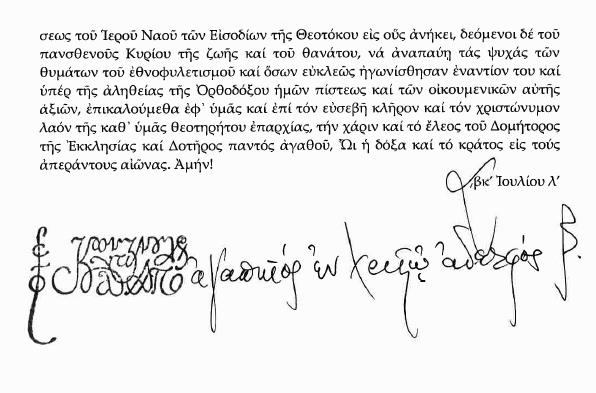 σεως τοῦ Ἱεροῦ Ναοῦ τῶν Εἰσοδίων τῆς Θεοτόκου εἰς οὕς ἀνήκει, δεόμενοι δέ τοῦ
πανσθενοῦς Κυρίου τῆς ζωῆς καί τοῦ θανάτου, νά ἀναπαύῃ τάς ψυχάς τῶν
θυμάτων τοῦ ἐθνοφυλετισμοῦ καί ὅσων εὐκλεῶς ἠγωνίσθησαν ἐναντίον του καί
ὑπέρ τῆς ἀληθείας τῆς Ὀρθοδόξου ἡμῶν πίστεως καί τῶν οἰκουμενικῶν αὐτῆς
ἀξιῶν, ἐπικαλούμεθα ἐφ᾽ ὑμᾶς καί ἐπί τόν εὐσεβῆ κλῆρον καί τόν χριστώνυμον
λαόν τῆς καθ᾽ ὑμᾶς θεοτηρήτου ἐπαρχίας, τήν χάριν καί τό ἔλεος τοῦ Δομήτορος
τῆς Ἐκκλησίας καί Δοτῆρος παντός ἀγαθοῦ, Ὧι ἡ δόξα καί τό κράτος εἰς τούς
ἀπεράντους αἰῶνας. Ἀμήν!
͵βκ′ Ἰουλίου λ′
ἀγαπητός ἐν Χριστῷ ἀδελφός β.